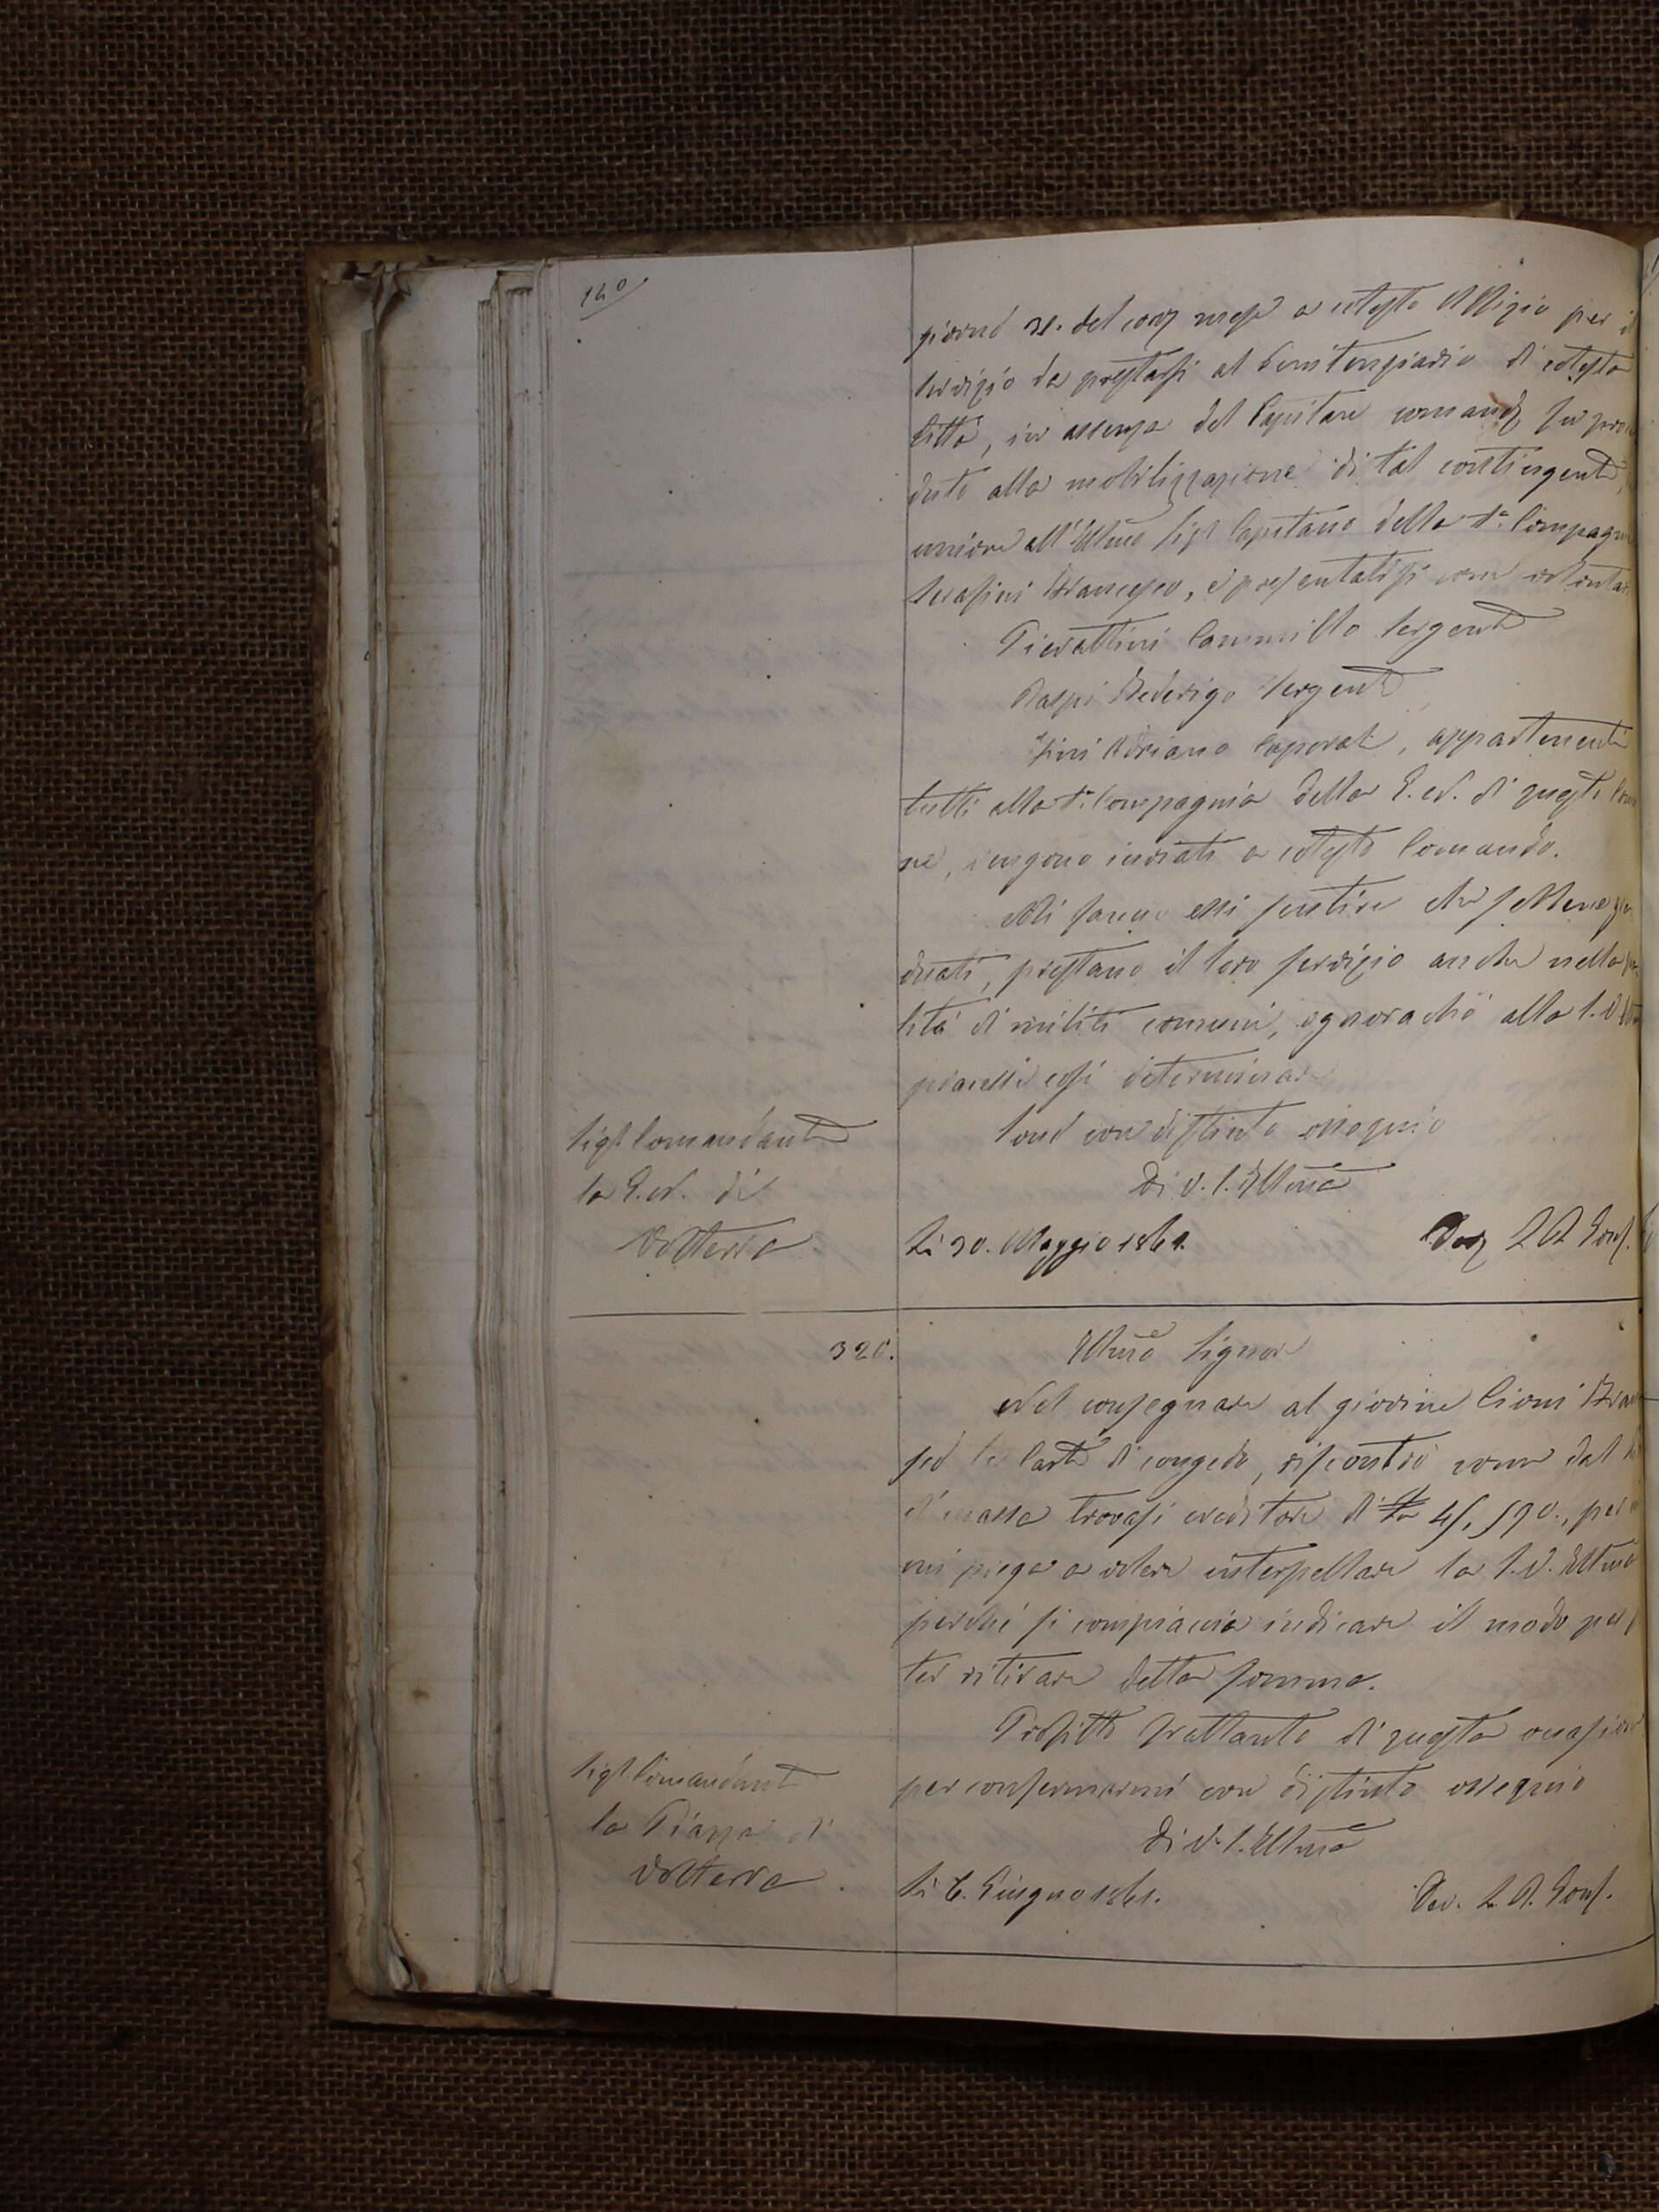 140
giorno 31. del corr mese a cotesto Uffizio per il
servizio da prestarsi al Penitenziario di cotesta
Città, in assenza del Capitano comand fu provve
duto alla mobilizzazione di tal contingente,
unione all' Illmo Sigr Capitano della 1a Compagnia
Serafini Francesco, e presentatisi come volontari
Pierattini Cammillo Sergente
Raspi Federigo Sergente
Fini Adriano Caporale, appartenenti
tutti alla 1a Compagnia della G. N. di questo Comu
ne, vengono inviati a cotesto Comando.
Mi fanno essi sentire che sebbene gra
duati, prestano il loro servizio anche nella qua
lità di militi comuni, ognorachè alla S. V. Illma
piacesse così determinare
Sono con distinto ossequio
Di V. S. Illma
Sigr Comandante
la G. N. di
Volterra
Li 30. Maggio 1861.
Dev L A Gonf.
320.
Illmo Signore
Nel consegnare al giovine Cioni Fran
co le Carte di congedo, riscontrò come dal
di massa trovasi creditore di 45, 570., per
mi prega a volere interpellare la S. V. Illma
perché si compiaccia indicare il modo per po
ter ritirare detta somma.
Profitto frattanto di questa occasione
per confermarmi con distinto ossequio
Di V. S. Illma
Sigr Comandante
la Piazza di
Volterra
Li 6. Giugno 1861.
Dev. L. A. Gonf.